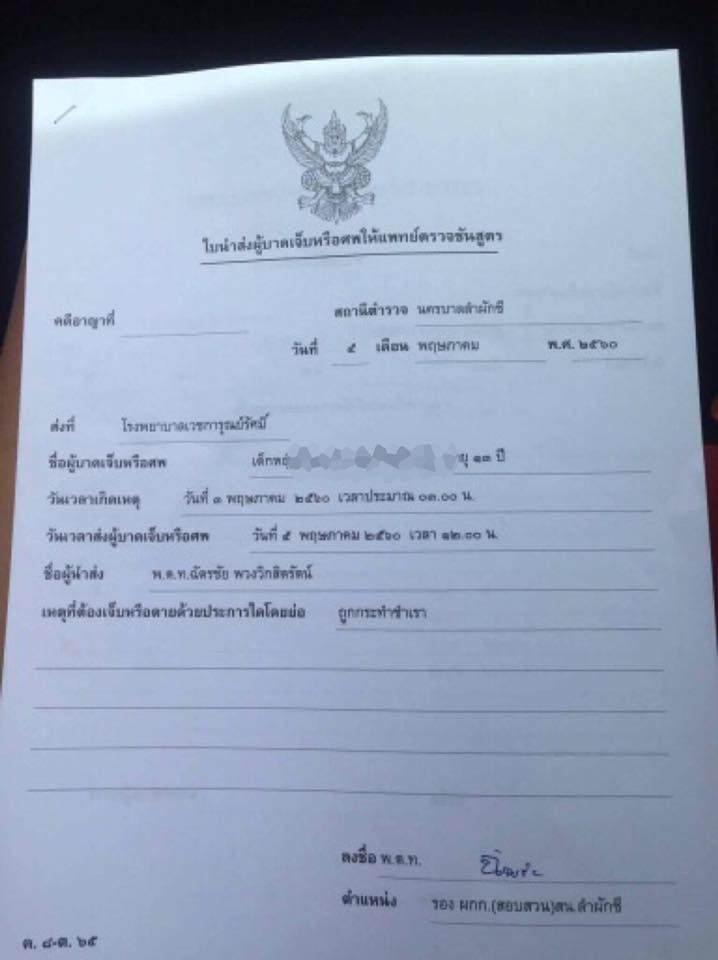 ใบนำส่งผู้บาดเจ็บหรือศพให้แพทย์ตรวจชันสูตร
คดีอาญาที่ สถานีตำรวจ นครบาลลำผักชี
วันที่ ๕ เดือน พฤษภาคม พ.ศ. ๒๕๖๐
ส่งที่ โรงพยาบาลเวชการุณย์รัศมิ์
ชื่อผู้บาดเจ็บหรือศพ เด็กหญ ยุ ๑๓ ปี
วันเวลาเกิดเหตุ วันที่ ๑ พฤษภาคม ๒๕๖๐ เวลาประมาณ ๐๓.๐๐ น.
วันเวลาส่งผู้บาดเจ็บหรือศพ วันที่ ๕ พฤษภาคม ๒๕๖๐ เวลา ๑๒.๐๐ น.
ชื่อผู้นำส่ง พ.ต.ท.ฉัตรชัย พวงวิกสิตรัตน์
เหตุที่ต้องเจ็บหรือตายด้วยประการใดโดยย่อ ถูกกระทำชำเรา
ลงชื่อ พ.ต.ท.
ตำแหน่ง รอง ผกก.(สอบสวน)สน.ลำผักชี
ค. ๘-ต. ๖๕